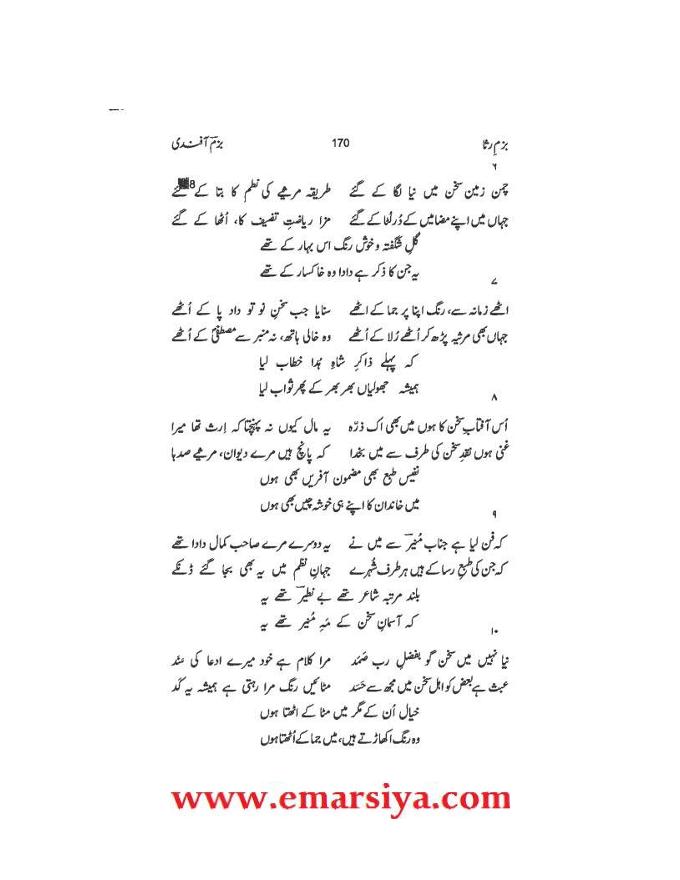 بزمِ رثا 170 بزمؔ آفندی
۶
چمن زمینِ سخن میں نیا لگا کے گئے طریقہ مرثیے کی نظم کا بتا کے گئے
جہاں میں اپنے مضامیں کے دُر لُٹا کے گئے مزا ریاضتِ تصنیف کا، اُٹھا کے گئے
گلِ شگفتہ و خوش رنگ اس بہار کے تھے
یہ جن کا ذکر ہے دادا وہ خاکسار کے تھے
۷
اٹھے زمانہ سے، رنگ اپنا پر جما کے اٹھے سنایا جب سخنِ نو تو داد پا کے اُٹھے
جہاں بھی مرثیہ پڑھ کر اُٹھے رُلا کے اُٹھے وہ خالی ہاتھ، نہ منبر سے مصطفیؐ کے اُٹھے
کہ پہلے ذاکرِ شاہِ ہُدا خطاب لیا
ہمیشہ جھولیاں بھر بھر کے پھر ثواب لیا
۸
اُس آفتابِ سخن کا ہوں میں بھی اک ذرّہ یہ مال کیوں نہ پہنچتا کہ اِرث تھا میرا
غنی ہوں نقدِ سخن کی طرف سے میں بخدا کہ پانچ ہیں مرے دیوان، مرثیے صدہا
نفیس طبع بھی مضمون آفریں بھی ہوں
میں خاندان کا اپنے ہی خوشہ چیں بھی ہوں
۹
کہ فن لیا ہے جناب مُنیرؔ سے میں نے یہ دوسرے مرے صاحب کمال دادا تھے
کہ جن کی طبعِ رسا کے ہیں ہر طرف شُہرے جہانِ نظم میں یہ بھی بجا گئے ڈنکے
بلند مرتبہ شاعر تھے بے نظیر تھے یہ
کہ آسمانِ سخن کے مَہِ مُنیر تھے یہ
۱۰
نیا نہیں میں سخن گو بفضلِ رب صَمَد مرا کلام ہے خود میرے ادعا کی سَند
عبث ہے بعض کو اہل سخن میں مجھ سے حَسَد مٹائیں رنگ مرا رہتی ہے ہمیشہ یہ کَد
خیال اُن کے مگر میں مٹا کے اٹھتا ہوں
وہ رنگ اکھاڑتے ہیں، میں جما کے اُٹھتا ہوں
www.emarsiya.com